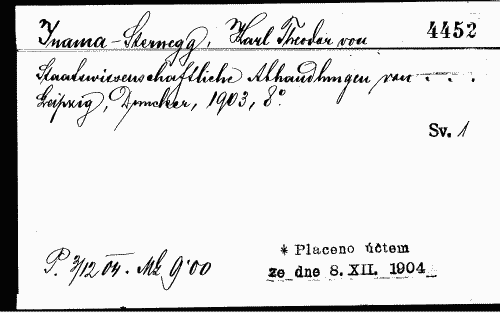 Inama-Sternegg, Karl Theodor von 4452
Staatswissenschaftliche Abhandlungen von . . . .
Leipzig, Duncker, 1903, 8°.
Sv. 1
P. 3/12 04. Mk 9·00
* Placeno účtem
ze dne 8. XII. 1904